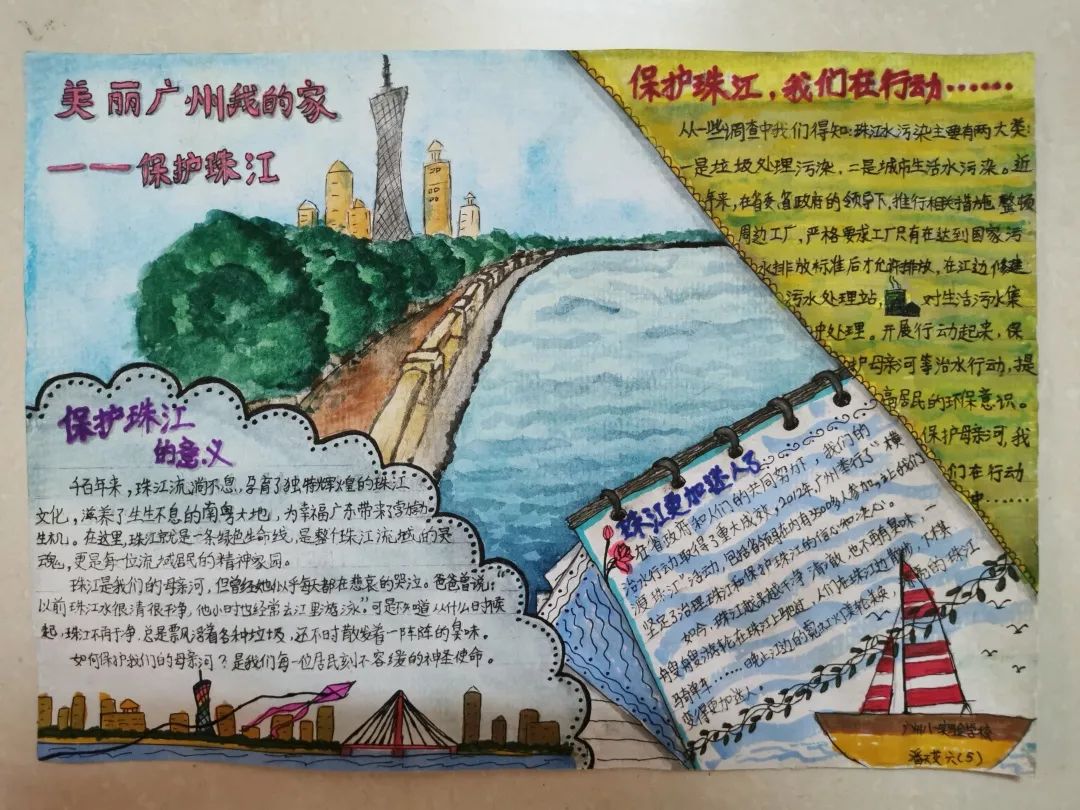 美丽广州我的家
——保护珠江
保护珠江，我们在行动……
从一些调查中我们得知：珠江水污染主要有两大类：
一是垃圾处理污染，二是城市生活水污染。近
年来，在省委、省政府的领导下，推行相关措施，整顿
周边工厂，严格要求工厂只有在达到国家污
水排放标准后才允许排放，在江边修建
污水处理站，对生活污水集
中处理。开展行动起来，保
护母亲河等治水行动，提
高居民的环保意识。
保护母亲河，我
们在行动
中……
保护珠江
的意义
千百年来，珠江流淌不息，孕育了独特辉煌的珠江
文化，滋养了生生不息的南粤大地，为幸福广东带来了勃勃
生机。在这里，珠江就是一条绿色生命线，是整个珠江流域的灵
魂，更是每一位流域居民的精神家园。
珠江是我们的母亲河，但曾经她几乎每天都在悲哀的哭泣。爸爸曾说，
以前珠江水很清很干净，他小时也经常去江里游泳。可是不知道从什么时候
起，珠江不再干净，总是漂浮着各种垃圾，还不时散发着一阵阵的臭味。
如何保护我们的母亲河？是我们每一位居民刻不容缓的神圣使命。
珠江更加迷人了
在省政府和人们的共同努力下，我们的
治水行动取得了重大成效，2012年广州举行了“横
渡珠江”活动，包括省领导在内有3500多人参加，
坚定了治理珠江和保护珠江的信心和决心。
如今，珠江越来越干净、清澈，也不再有臭味，一
艘艘游轮在珠江上驶过，人们在珠江边散步、下棋
骑单车……晚上江边的霓虹灯亮起来，
变得更加迷人
潘 六(5)